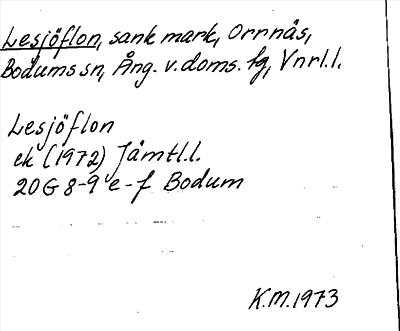 Lesjöflon, sank mark, Orrnäs,
Bodums sn, Ång. v. doms. fg, Vnrl.l.
Lesjöflon
ek (1972) Jämtl.l.
20G 8-9 e-f Bodum
K.M. 1973